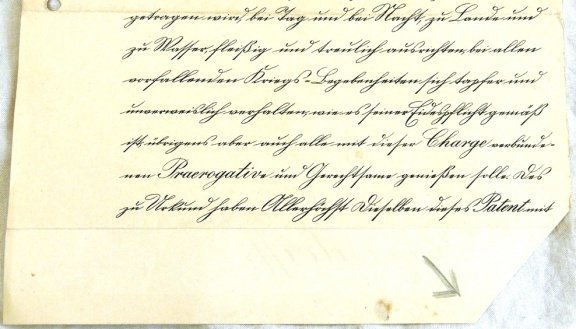 getragen wird, bei Tag und bei Nacht, zu Lande und
zu Wasser, fleißig und treulich ausrichten, bei allen
vorfallenden Kriegs-Begebenheiten sich tapfer und
unverweislich verhalten, wie es seiner Eidespflicht gemäß
ist, übrigens aber auch alle mit dieser Charge verbunde-
nen Praerogative und Gerechtsame genießen solle. Des
zu Urkund haben Allerhöchst Dieselben dieses Patent mit